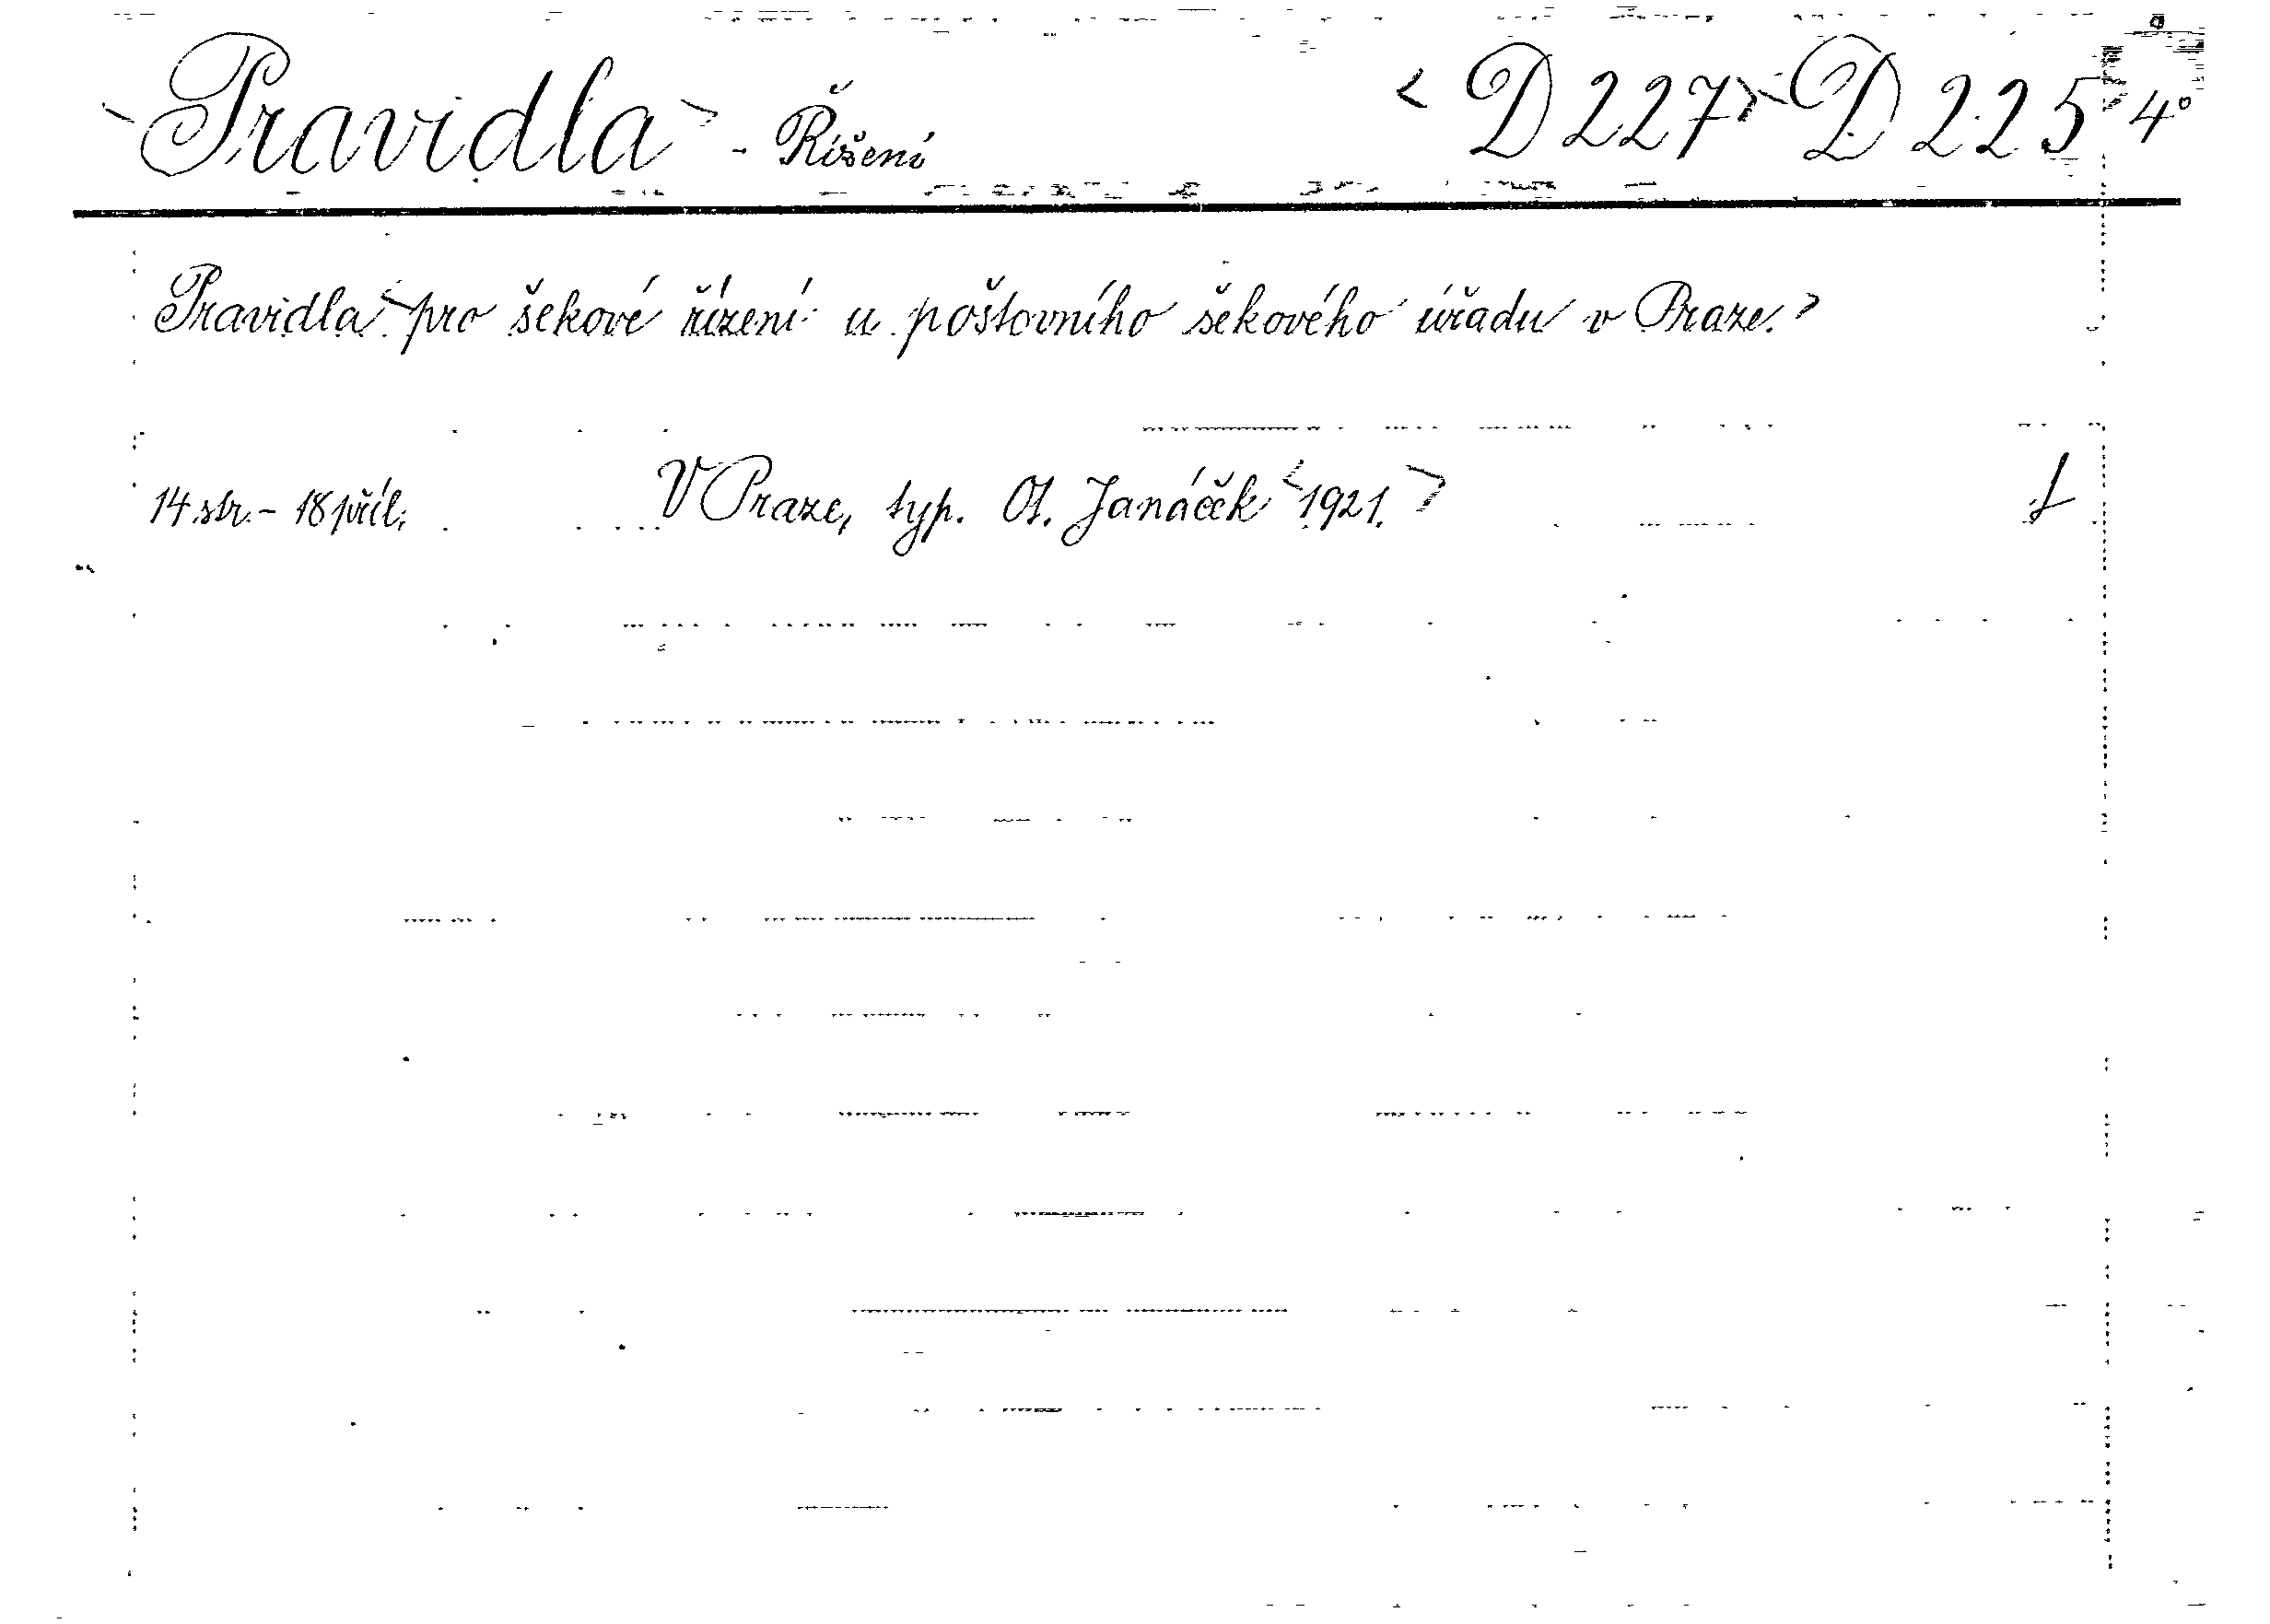 <Pravidla> - Říšení <D 227> <D 225 4°
Pravidla <pro šekové řízení u poštovního šekového úřadu v Praze.>
14 str. - 18 příl. V Praze, typ. Ot. Janáček <1921.>